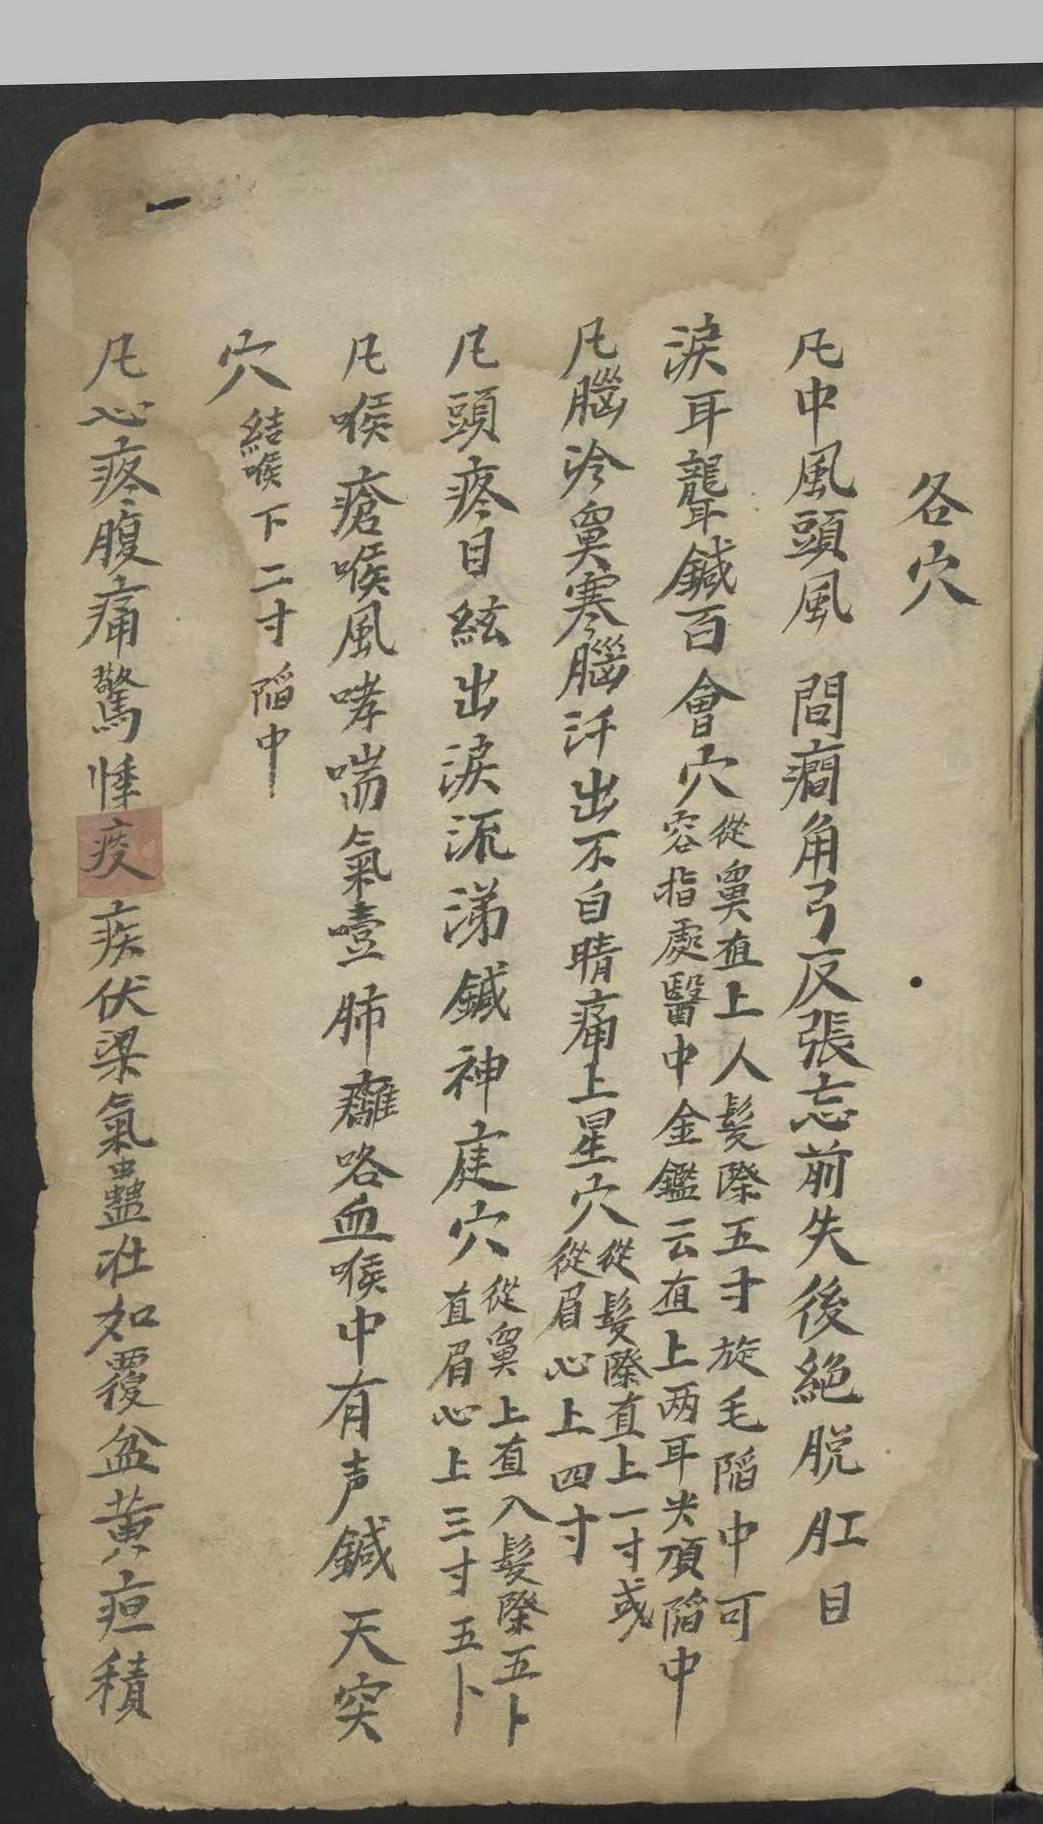 各穴
凢中風頭風間癎角弓反張忘前失後絕脱肛目
淚耳聾鍼百會穴
從鼻直上人髮際五寸旋毛陷中可
容指處醫中金鑑云直上两耳尖頂陷中
凢腦冷鼻寒腦汗出不自晴痛上星穴
從髮際直上一寸或
從眉心上四寸
凢頭疼目絃出淚流涕鍼神庭穴
從鼻上直入髮際五卜
直眉心上三寸五卜
凢喉瘡喉風哮喘氣噎肺癰咯血喉中有声鍼天突
穴
結喉下二寸陷中
凢心疼腹痛驚悸痰疾伏梁氣蠱壯如覆盆黄疸積